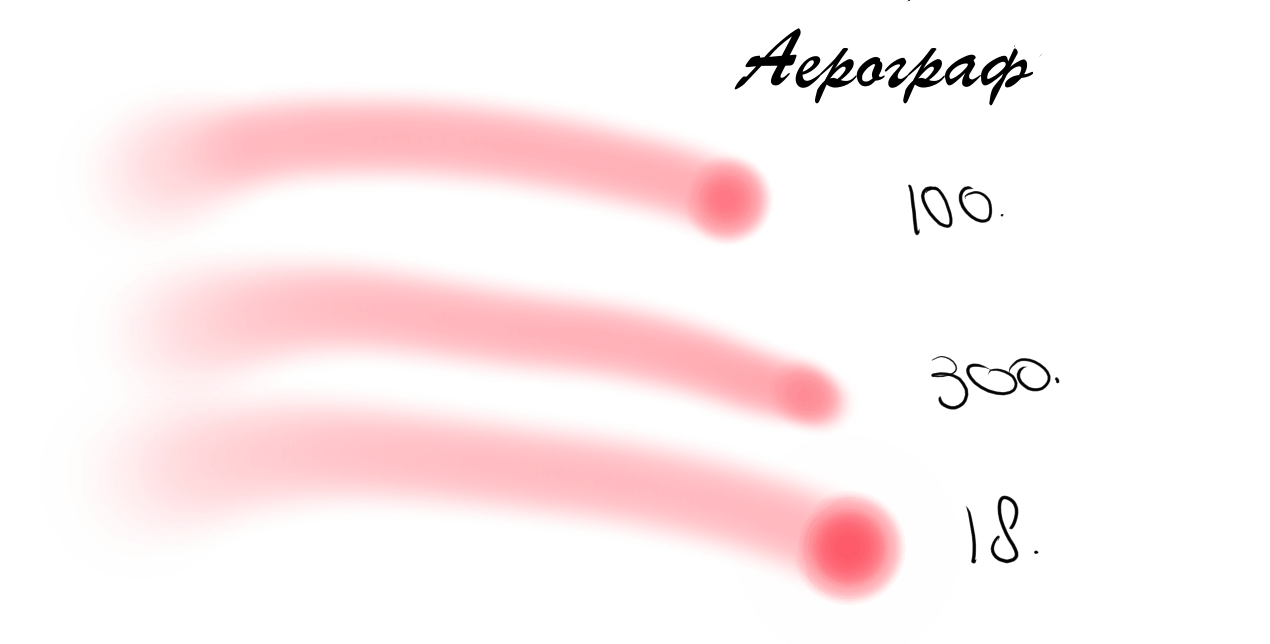 Аерограф
100.
300.
18.